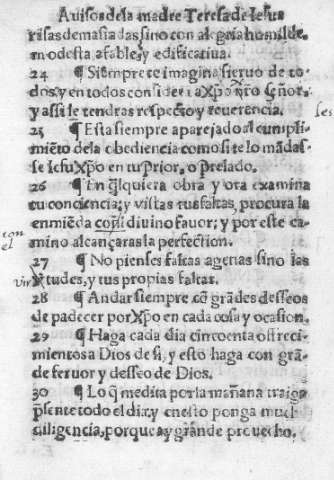 Auisos dela madre Teresa de Iesus
risas demasiadas sino con alegria humilde
modesta afable, y edificatiua.
24 ¶ Siempre te imagina sieruo de to-
dos, y en todos considera a Xp̃o nr̃o Señor,
y assi le tendras respecto y reuerencia. les
25 ¶ Esta siempre aparejado al cumpli-
miẽto dela obediencia como si te lo mãdas-
se Iesu Xp̃o en tu prior, o prelado.
26 ¶ En q̃lquiera obra y ora examina
tu conciencia; y vistas tus faltas, procura la
enmiẽda con el diuino fauor; y por este ca-
con
el
mino alcançaras la perfection.
27 ¶ No pienses faltas agenas sino las
vir tudes, y tus propias faltas.
28 ¶ Andar siempre cõ grãdes desseos
de padecer por Xp̃o en cada cosa y ocasion.
29 ¶ Haga cada dia cincoenta offreci-
mientos a Dios de si, y esto haga con grã-
de feruor y desseo de Dios.
30 ¶ Lo q̃ medita por la mañana traiga
p̃sente todo el dia: y en esto ponga mucha
diligencia, porque ay grãnde prouecho.